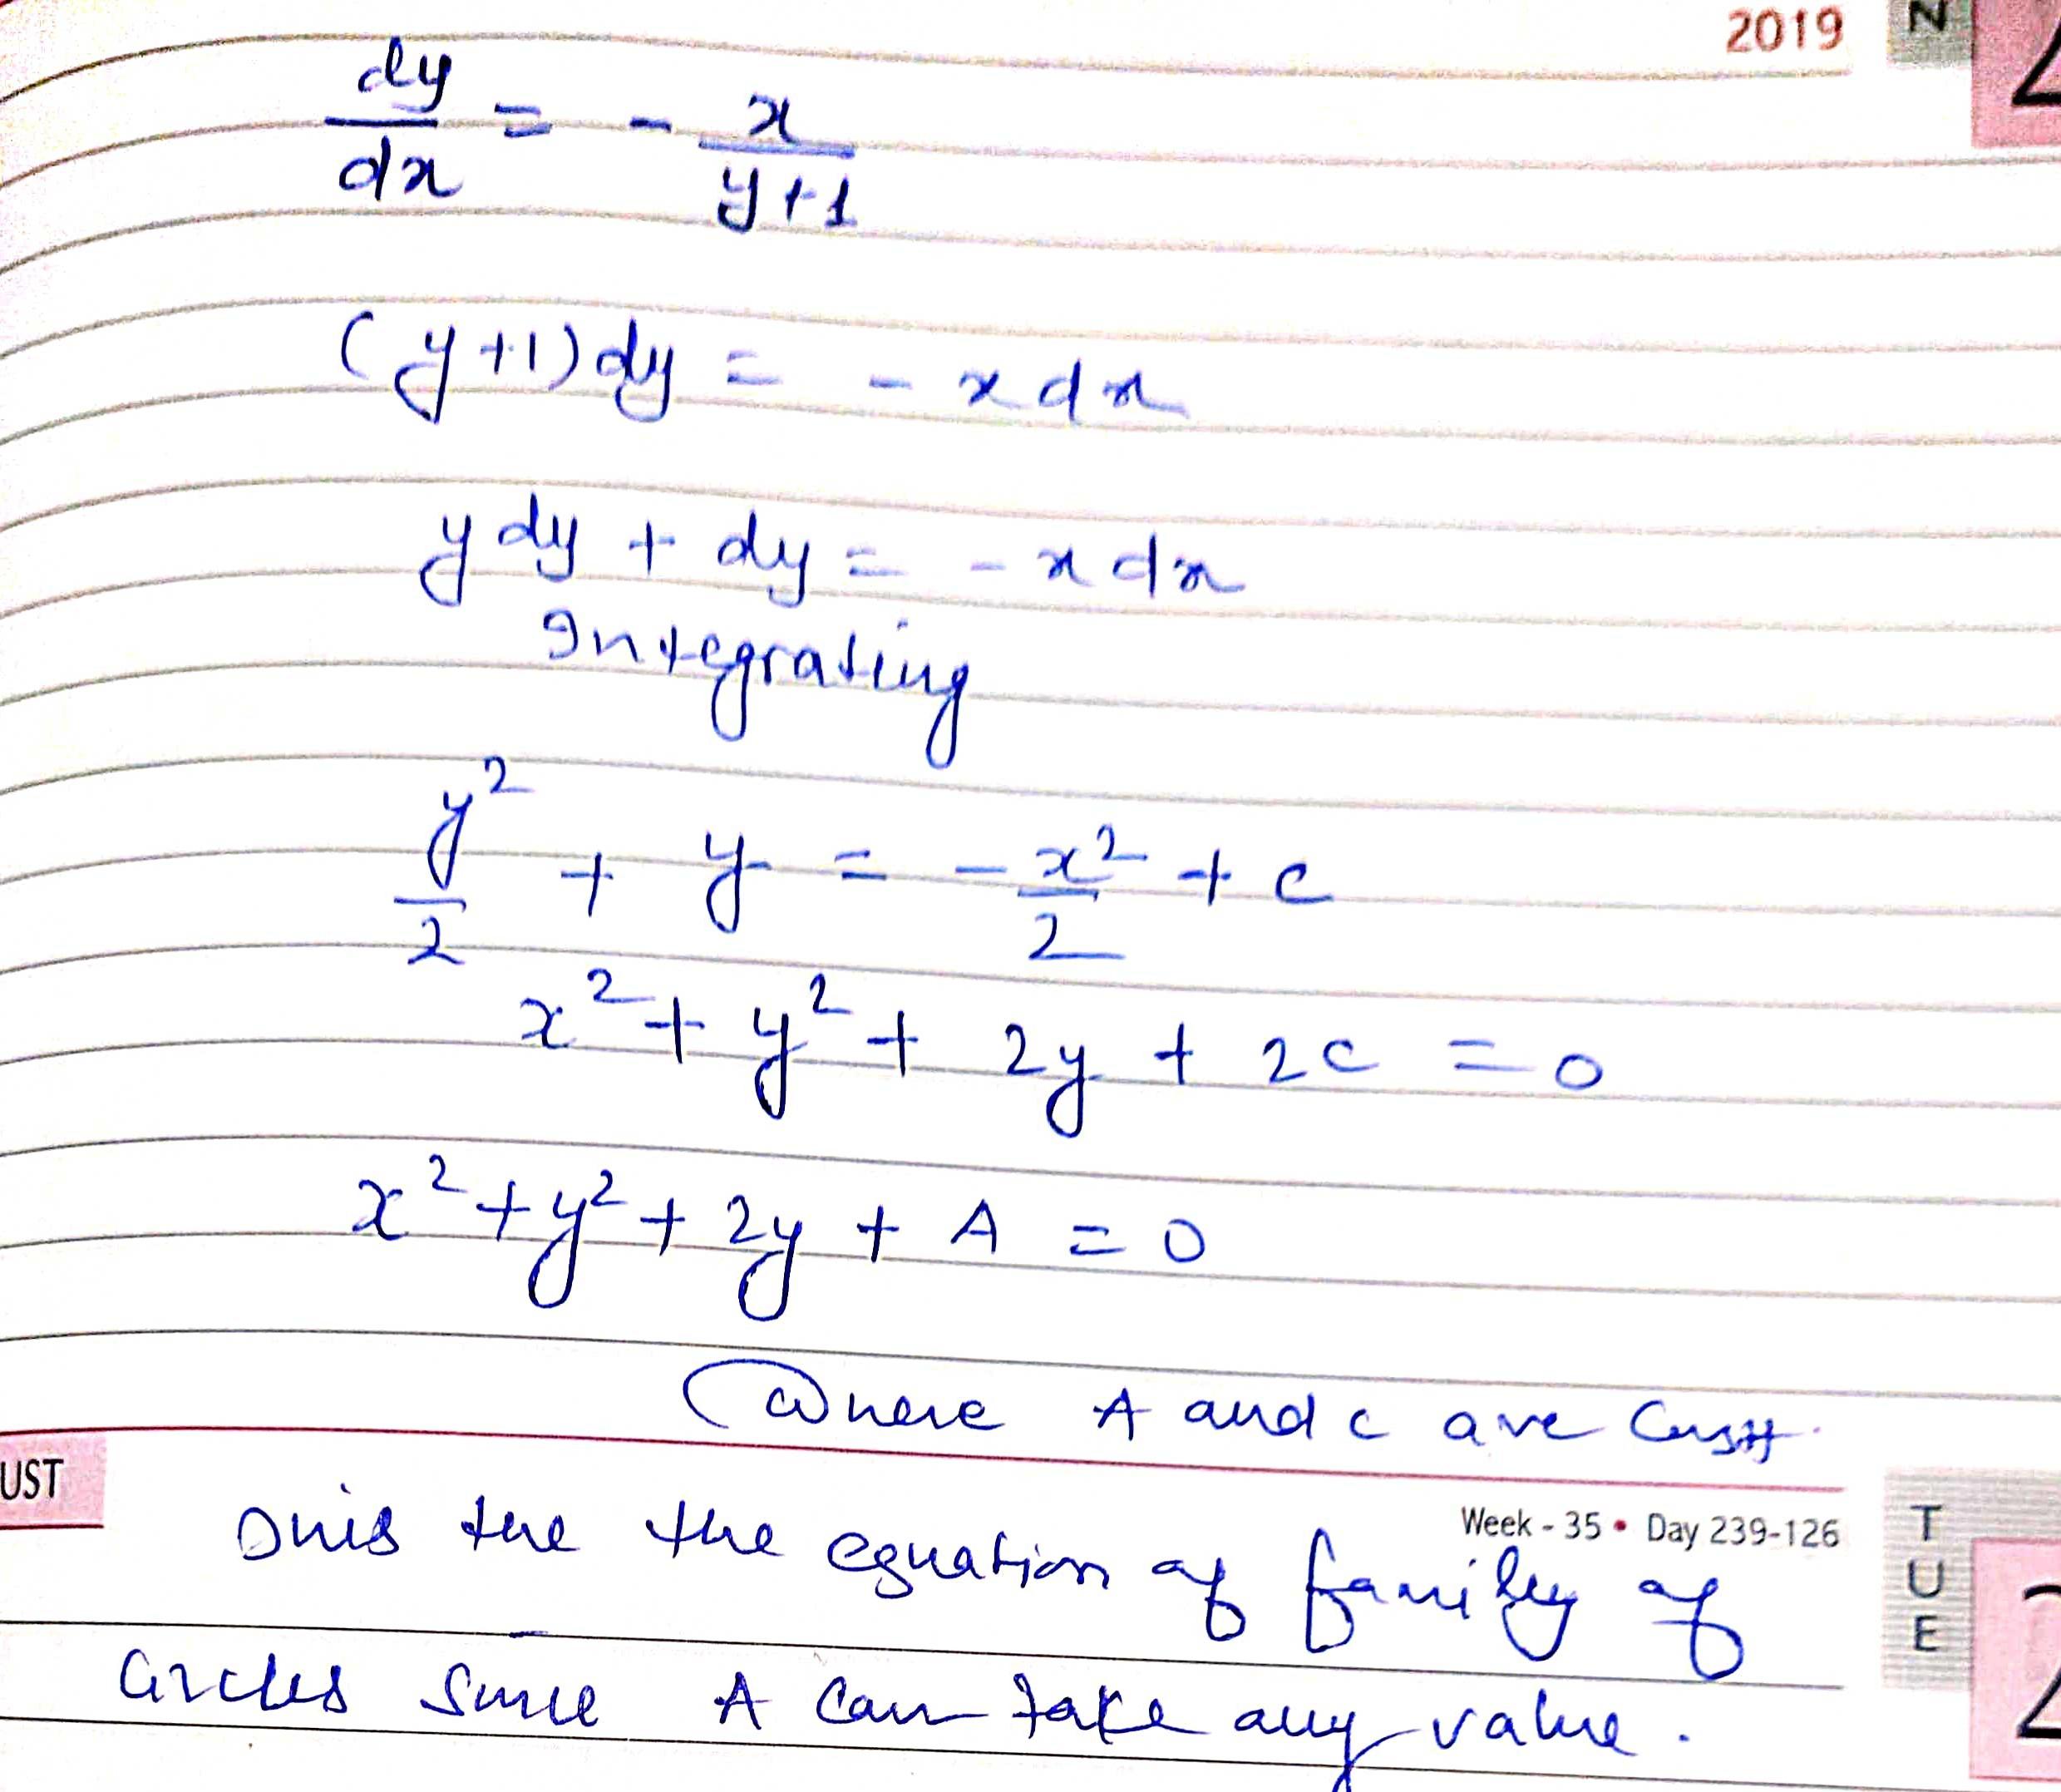 2019 N
dy/dx = - x/(y+1)
(y+1)dy = - x dx
y dy + dy = - x dx
Integrating
y²/2 + y = - x²/2 + c
x² + y² + 2y + 2c = 0
x² + y² + 2y + A = 0
Where A and c are
UST
Week - 35 • Day 239-126
TUE
2
the the equation of family of
circles since A can take any value.